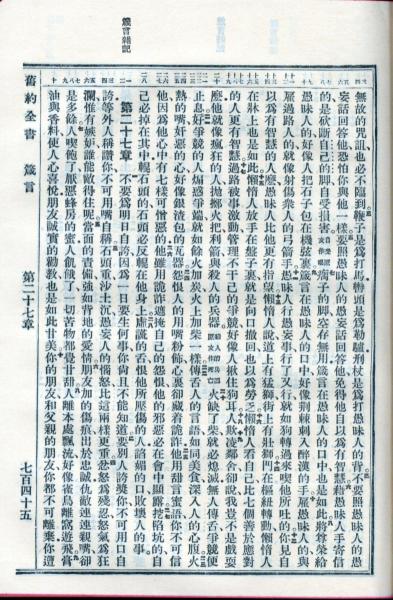 無故的咒詛也必不臨到鞭子是為打馬轡頭是為勒驢刑杖是為打愚昧人的背不要照愚昧人的愚
妄話回答他恐怕你與他一樣要照愚昧人的愚妄話回答他免得他自以為有智慧藉愚昧人手寄信
的是砍斷自己的腳自受損害瘸子的腳空存無用箴言在愚昧人的口中也是如此將尊榮給
愚昧人的好像人把石子包在機弦裏箴言在愚昧人的口中好像荊棘刺入醉漢的手雇愚昧人的與
雇過路人的就像射傷衆人的弓箭手愚昧人行愚妄事行了又行就如狗轉過來喫他所吐的你見自
以為有智慧的人麼愚昧人比他更有指望懶惰人說道上有猛獅街上有壯獅門在樞紐轉動懶惰人
在牀上也是如此懶惰人放手在盤子裏就是向口撤回也以為勞乏懶惰人看自己比七個善於應對
的人更有智慧過路被事激動管理不干己的爭競好像人揪住狗耳人欺凌鄰舍卻說我豈不是戲耍
麼他就像瘋狂的人拋擲火把利箭與殺人的兵器殺人的兵器原文作死亡火缺了柴就必熄滅無人傳舌爭競便
止息好爭競的人煽惑爭端就如餘火加炭火上加柴一樣傳舌人的言語如同美食深入人的心腹火
熱的嘴奸惡的心好像銀渣包的瓦器怨恨人的用嘴粉飾心裏卻藏着詭詐他用甜言蜜語你不可信
他因為他心中有七樣可憎惡的他雖用詭詐遮掩自己的怨恨他的邪惡必在會中顯露挖陷坑的自
己必掉在其中輥石頭的石頭必反輥在他身上虛謊的舌恨他所壓傷的人諂媚的口敗壞人的事
第二十七章 不要為明日自誇因為一日要生何事你尚且不能知道要別人誇獎你不可用口自
誇等外人稱讚你不可用嘴自稱石頭重沙土沉愚妄人的惱怒比這兩樣更重忿怒為殘忍怒氣為狂
瀾惟有嫉妒誰能敵得住呢當面的責備強如背地的愛情朋友加的傷痕出於忠誠仇敵連連親嘴卻
是多餘人喫飽了厭惡蜂房的蜜人飢餓了一切苦物都覺甘甜人離本處飄流好像雀鳥離窩遊飛膏
油與香料使人心喜悅朋友誠實的勸教也是如此甘美你的朋友和父親的朋友你都不可離棄你遭
舊約全書 箴言 第二十七章 七百四十五